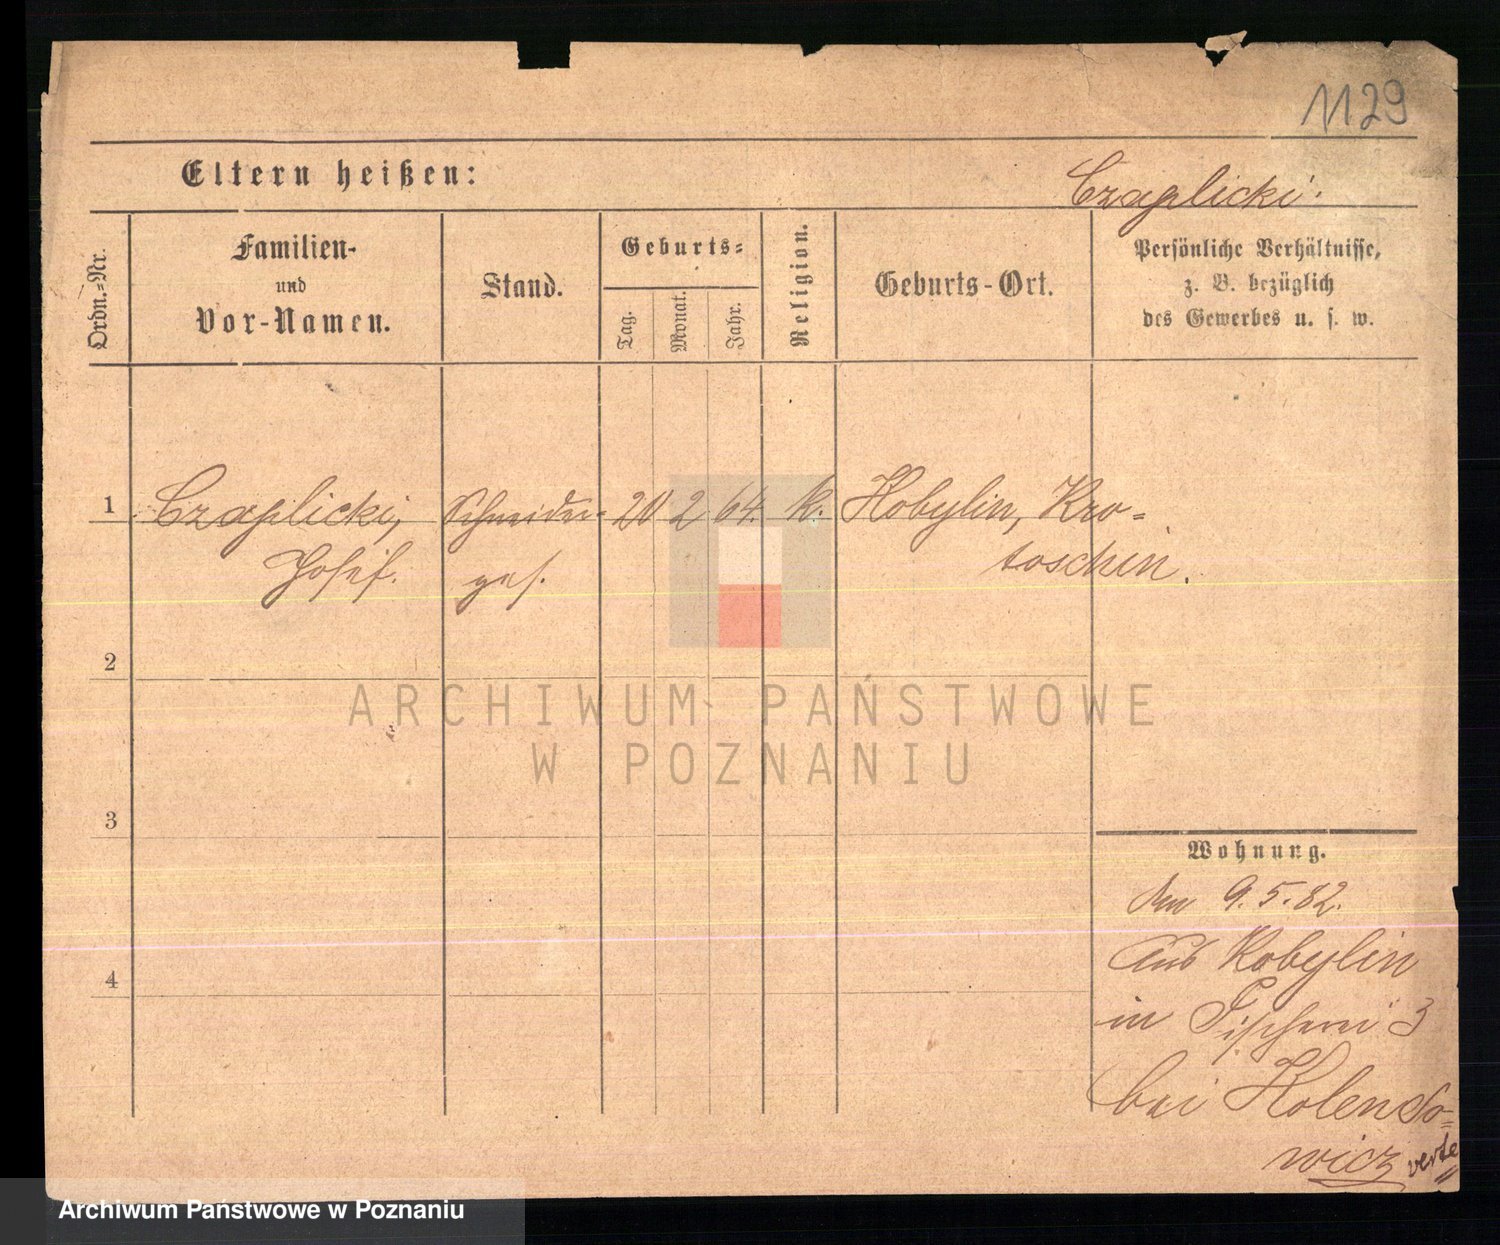 1129
Eltern heißen:
Czaplicki.
Ordn.-Nr.
Familien-
und
Vor-Namen.
Stand.
Geburts-
Tag.
Monat.
Jahr.
Religion.
Geburts-Ort.
Persönliche Verhältnisse,
z. B. bezüglich
des Gewerbes u. s. w.
1 Czaplicki, Schneider- 20 2 64. k. Kobylin, Kro-
Josef. ges. toschin.
2
ARCHIWUM PAŃSTWOWE
W POZNANIU
3
Wohnung.
den 9.5.82.
aus Kobylin
4
in Fischerei 3
bei Kolendo-
wicz verte
Archiwum Państwowe w Poznaniu